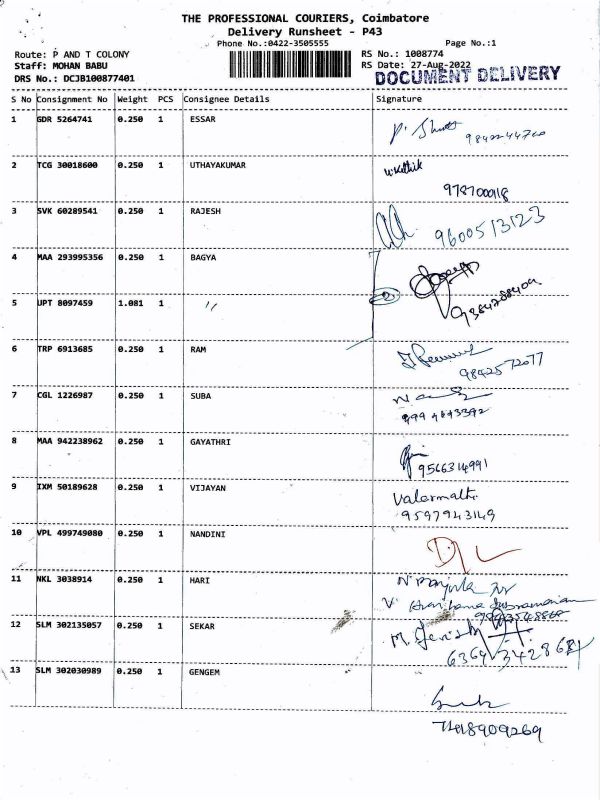 THE PROFESSIONAL COURIERS, Coimbatore
Delivery Runsheet - P43
Phone No.:0422-3505555 Page No.:1
Route: P AND T COLONY RS No.: 1008774
Staff: MOHAN BABU RS Date: 27-Aug-2022
DRS No.: DCJB100877401 DOCUMENT DELIVERY
S No Consignment No Weight PCS Consignee Details Signature
1 GDR 5264741 0.250 1 ESSAR
2 TCG 30018600 0.250 1 UTHAYAKUMAR
978700918
3 SVK 60289541 0.250 1 RAJESH
9600513123
4 MAA 293995356 0.250 1 BAGYA
5 UPT 8097459 1.081 1 〃
6 TRP 6913685 0.250 1 RAM
9842572077
7 CGL 1226987 0.250 1 SUBA
8 MAA 942238962 0.250 1 GAYATHRI
9566314991
9 IXM 50189628 0.250 1 VIJAYAN Valarmathi
9597943149
10 VPL 499749080 0.250 1 NANDINI
11 NKL 3038914 0.250 1 HARI
12 SLM 302135057 0.250 1 SEKAR
13 SLM 302030989 0.250 1 GENGEM